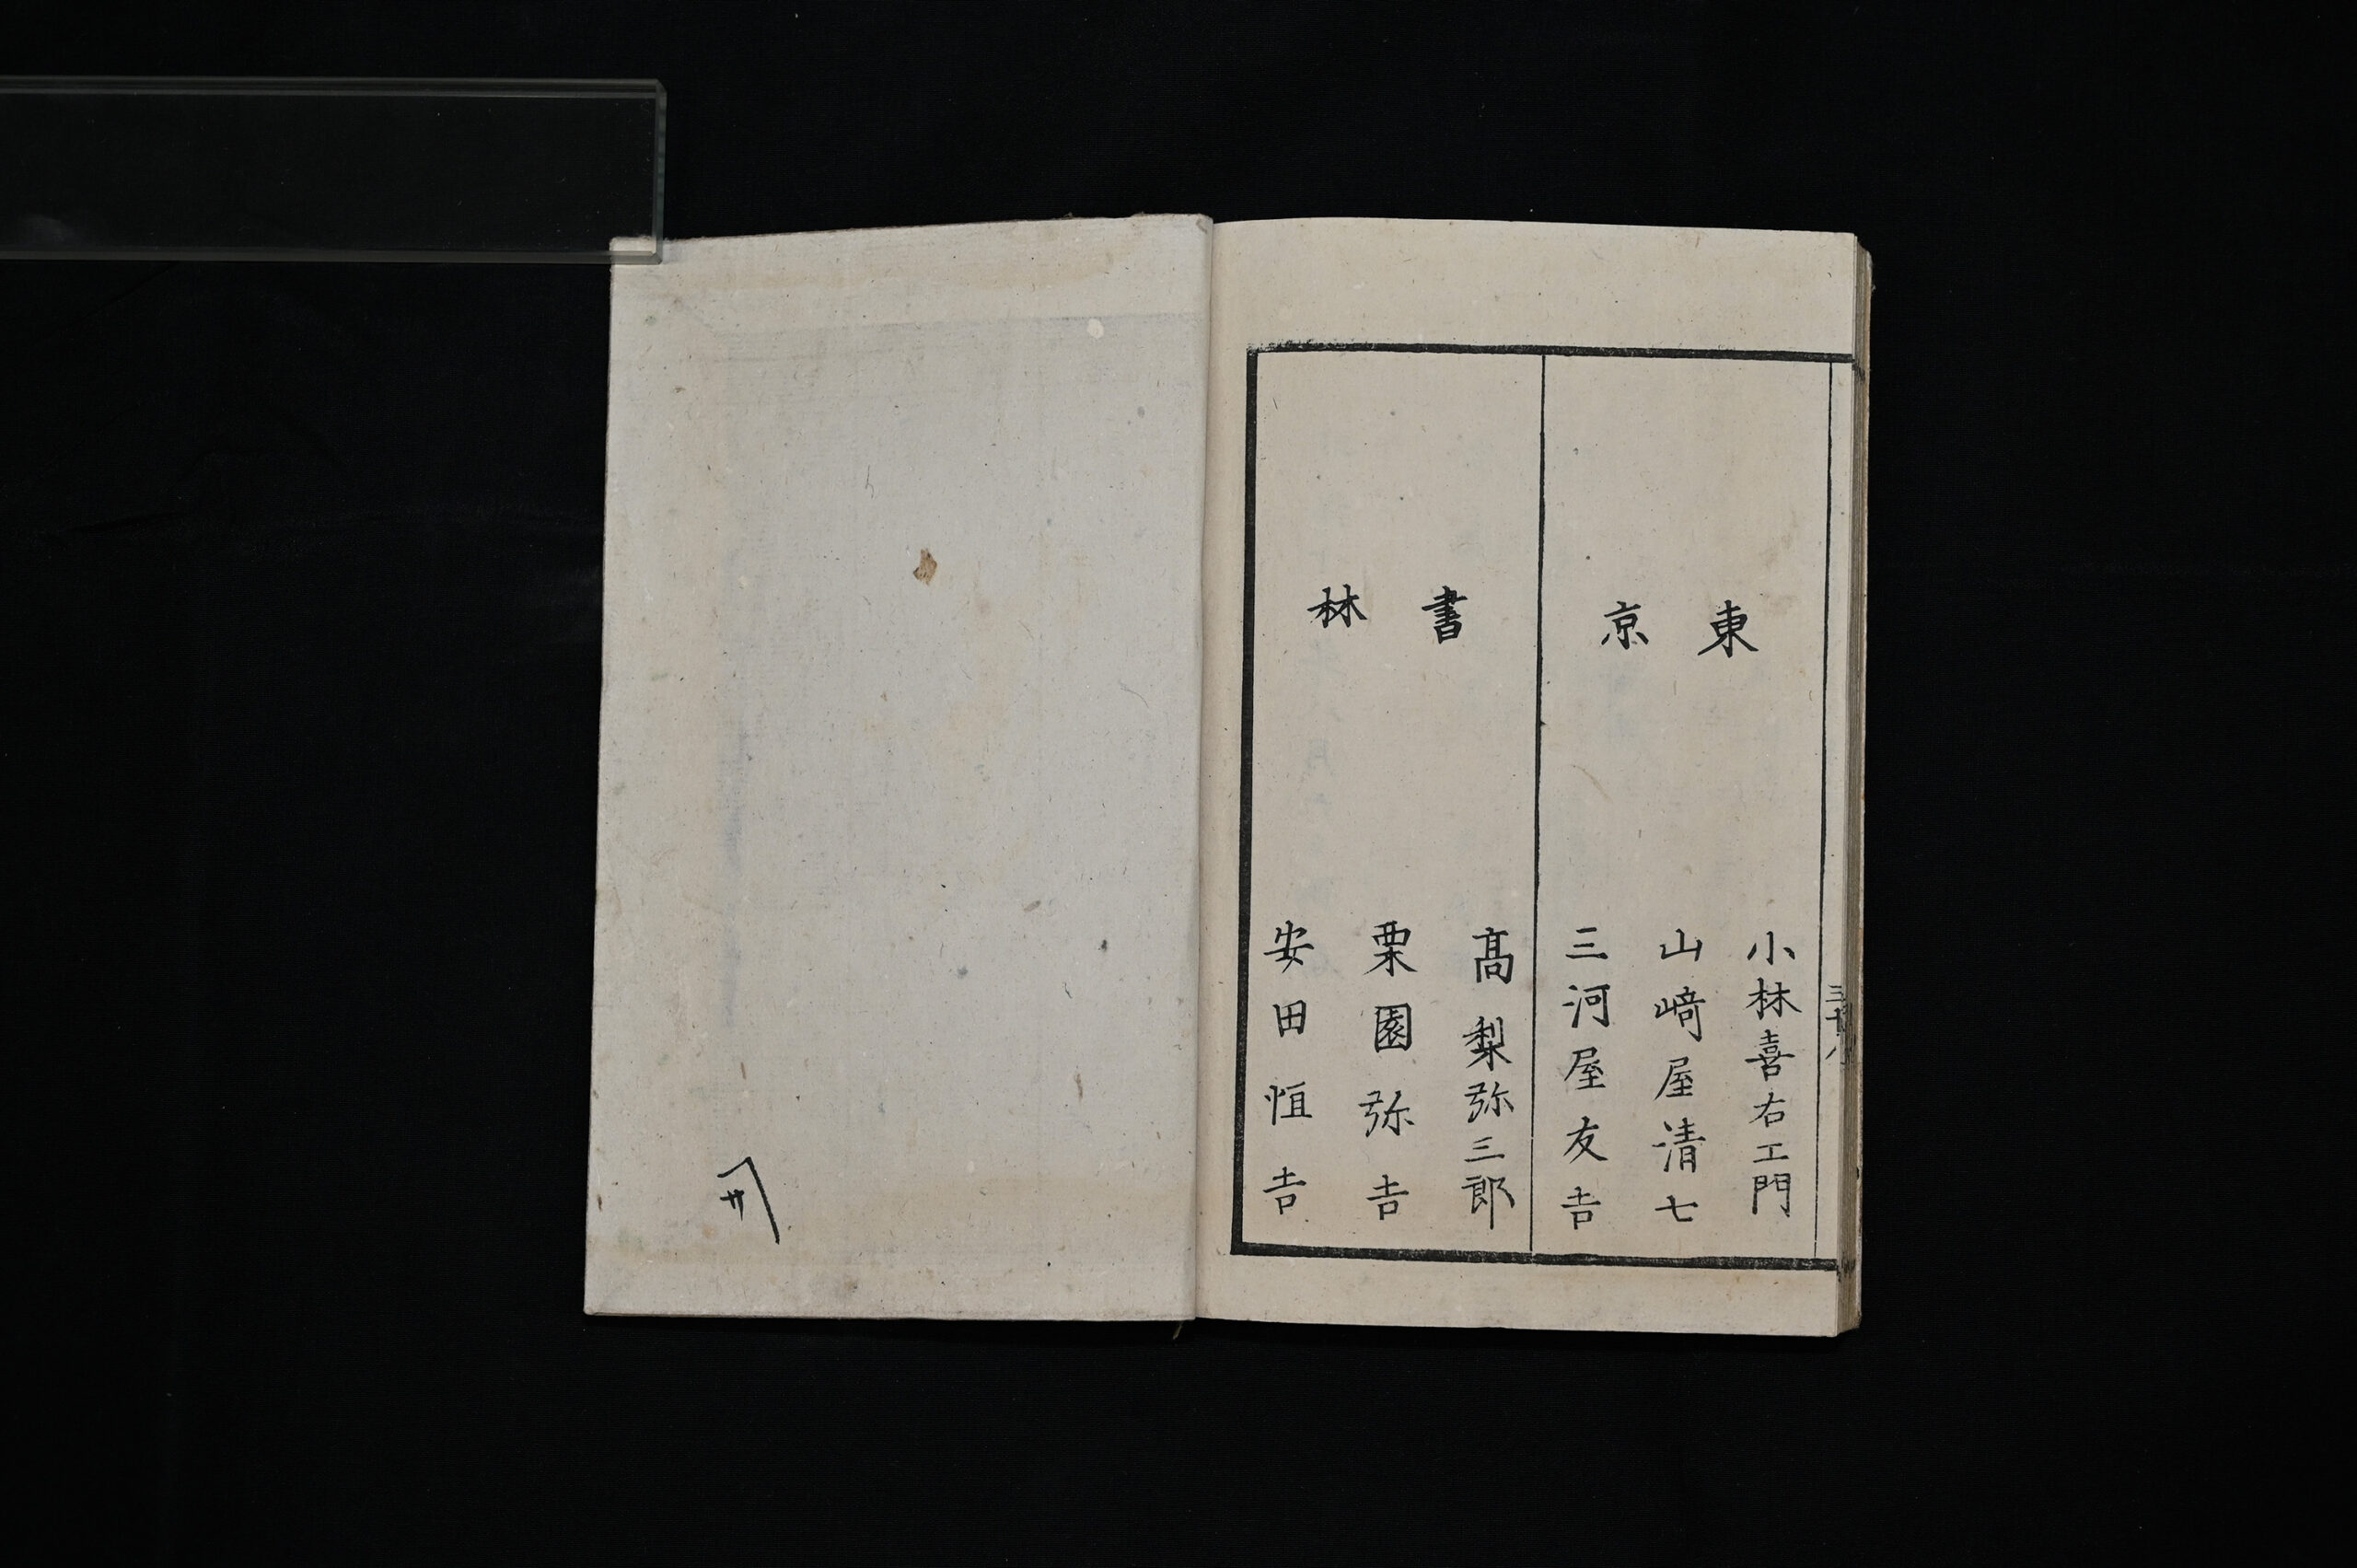 東京
書林
小林喜右エ門
山﨑屋清七
三河屋友吉
髙梨弥三郎
栗園弥吉
安田恒吉